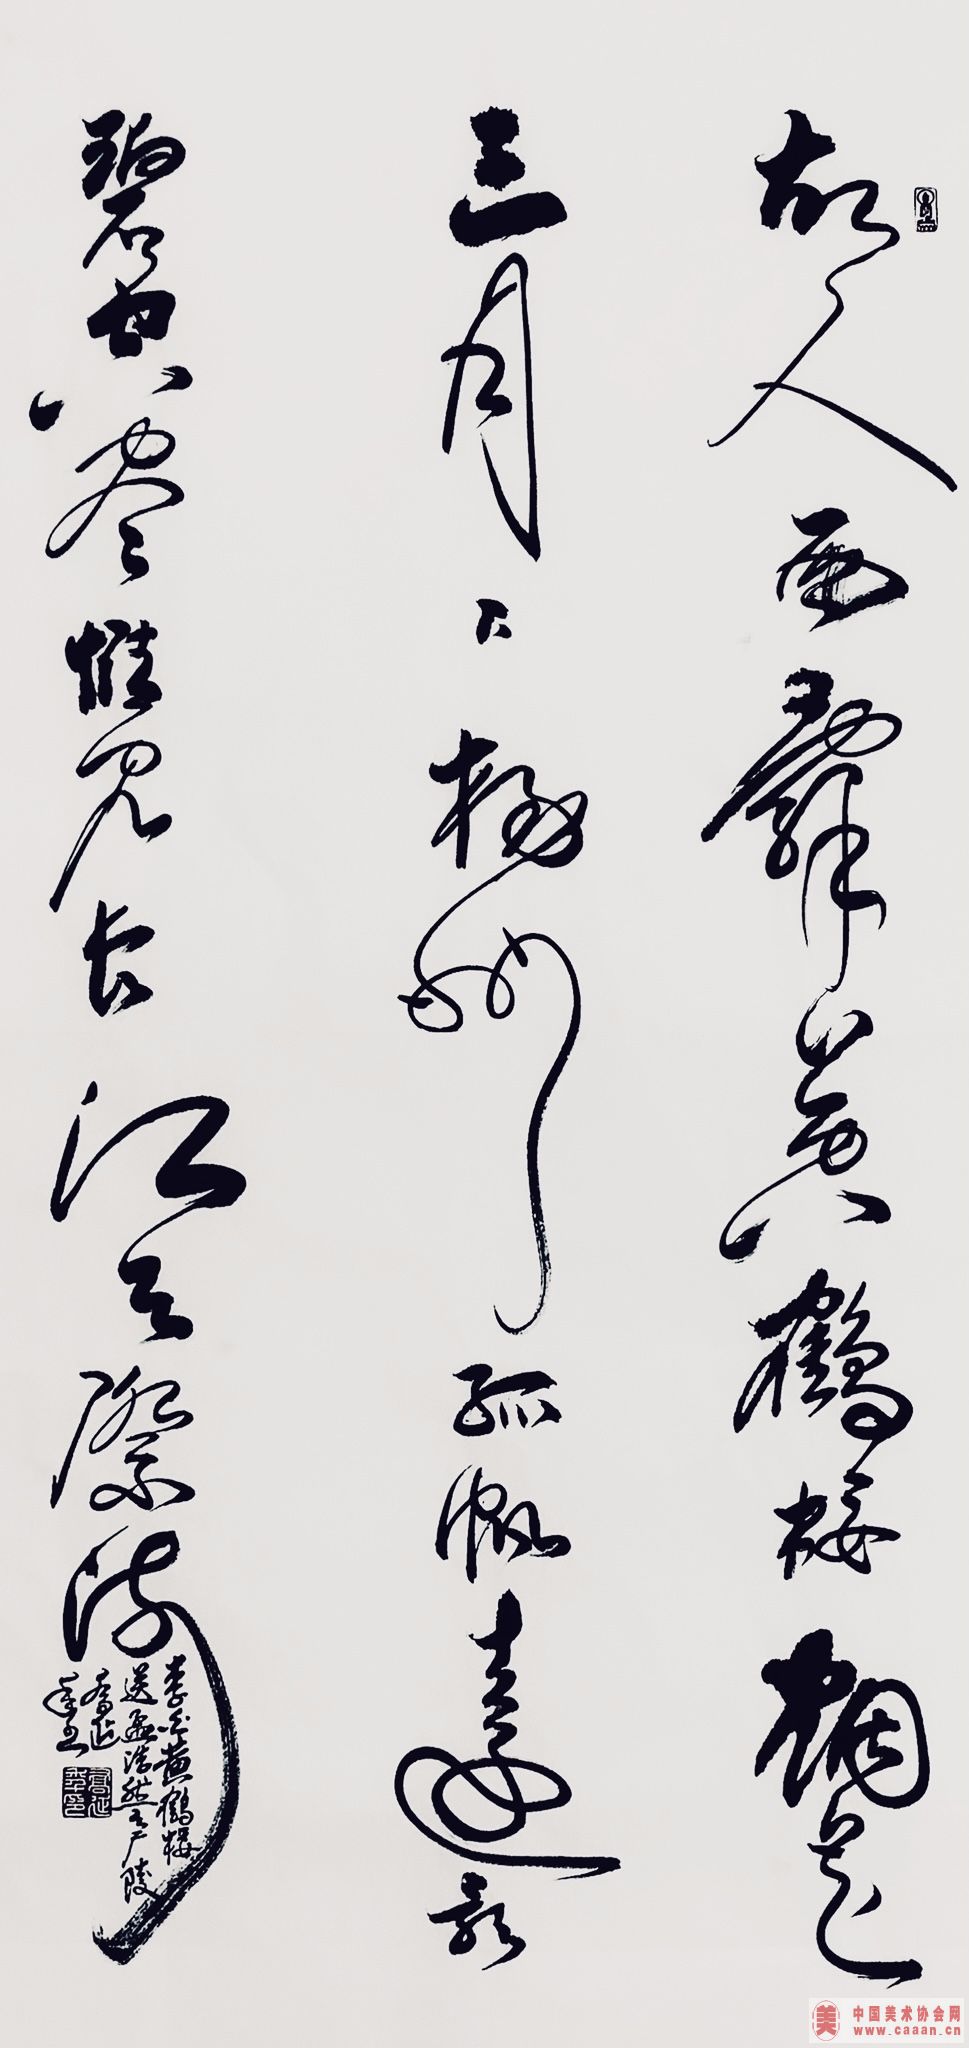 故人西辞黄鹤楼烟花
三月下扬州孤帆远影
碧空尽惟见长江天际流
李白黄鹤楼
送孟浩然之广陵
中国美术协会网
www.caaan.cn